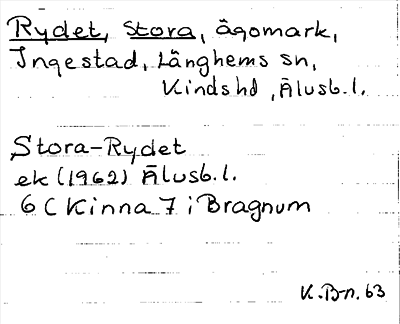 Rydet, Stora, ägomark,
Ingestad, Länghems sn,
Kindshd, Älvsb.l.
Stora-Rydet
ek (1962) Älvsb.l.
6 C Kinna 7 i Bragnum
K.B-n. 63